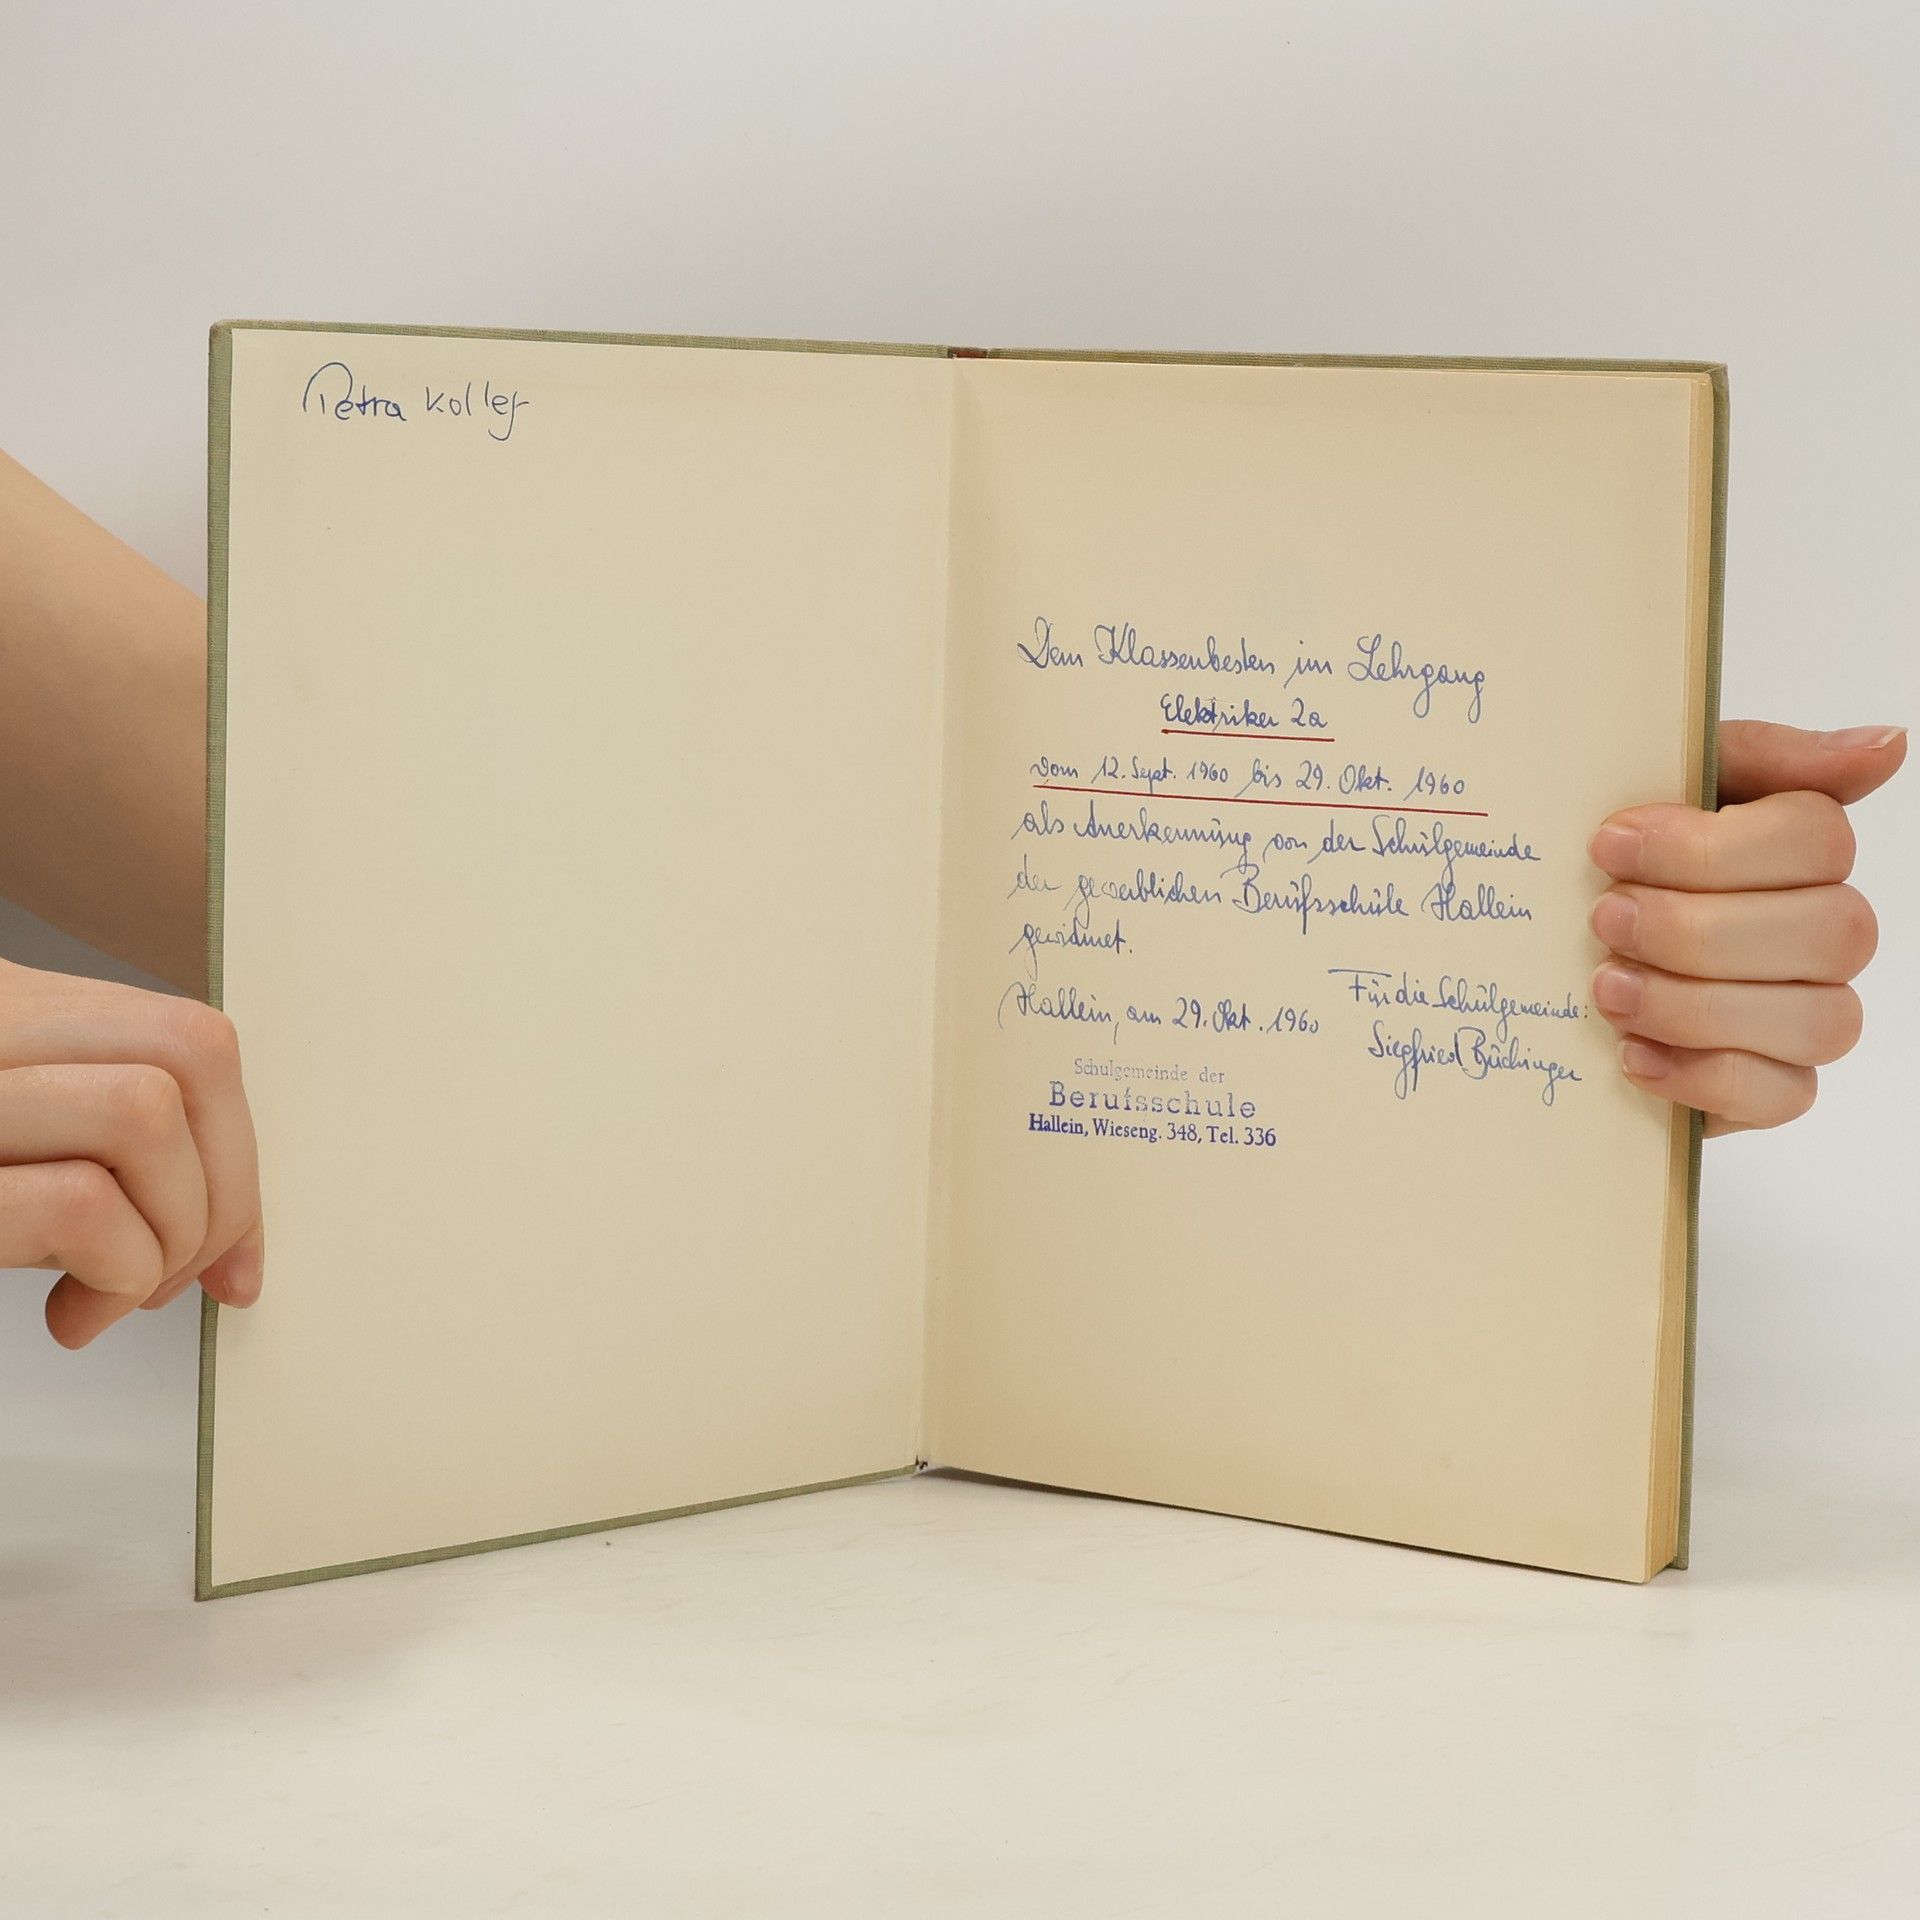 Petra Koller
Dem Klassenbesten im Lehrgang
Elektriker 2a
vom 12. Sept. 1960 bis 29. Okt. 1960
als Anerkennung von der Schulgemeinde
der gewerblichen Berufsschule Hallein
gewidmet.
Hallein, am 29. Okt. 1960
Für die Schulgemeinde:
Siegfried Büchinger
Schulgemeinde der
Berufsschule
Hallein, Wieseng. 348, Tel. 336